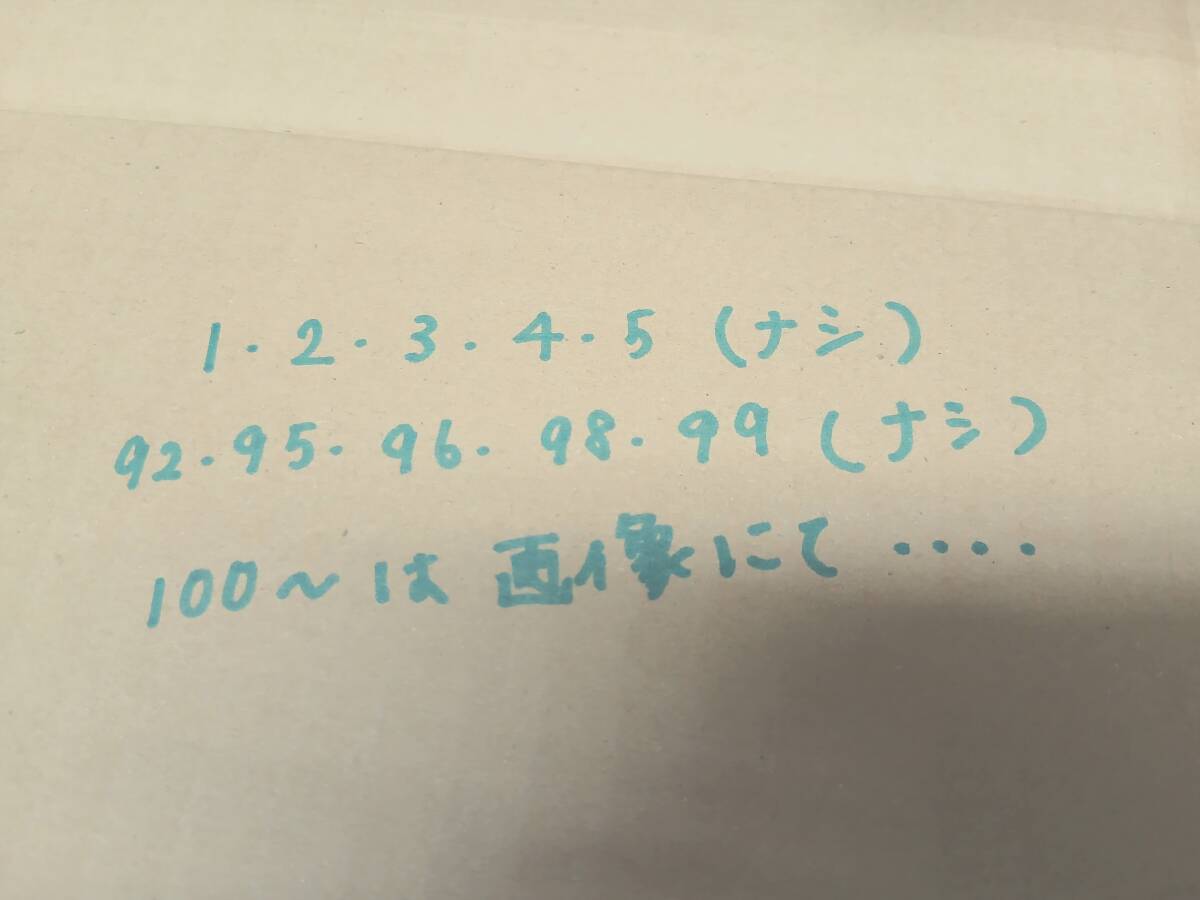 1・2・3・4・5（ナシ）
92・95・96・98・99（ナシ）
100～は画像にて・・・・